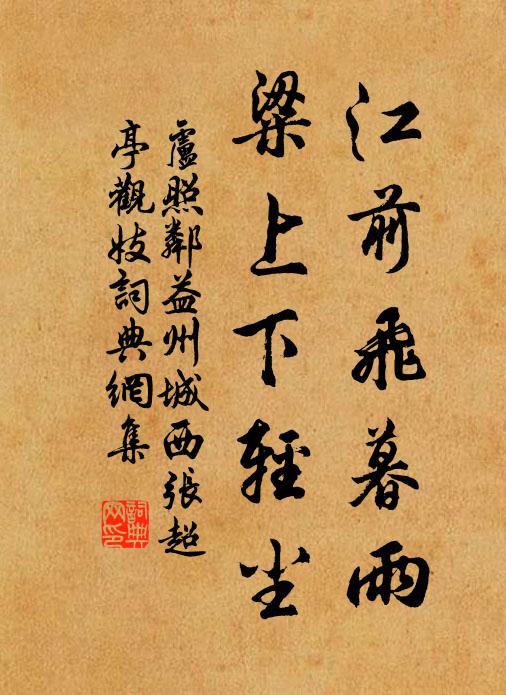 江前飛暮雨
梁上下輕尘
盧照鄰益州城西張超
亭觀妓詞典網集
詞典
网印